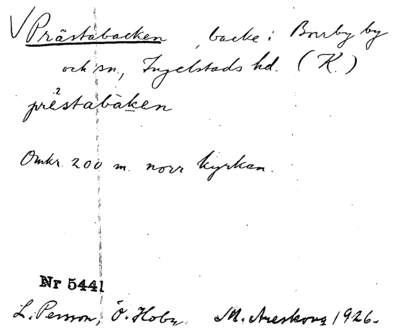 √ Prästabacken, backe i Borrby by
och sn, Ingelstads hd. (K.)
prästabàken
Omkr. 200 m. norr kyrkan.
Nr 5441
L. Persson, Ö. Hoby. M. Areskoug 1926.